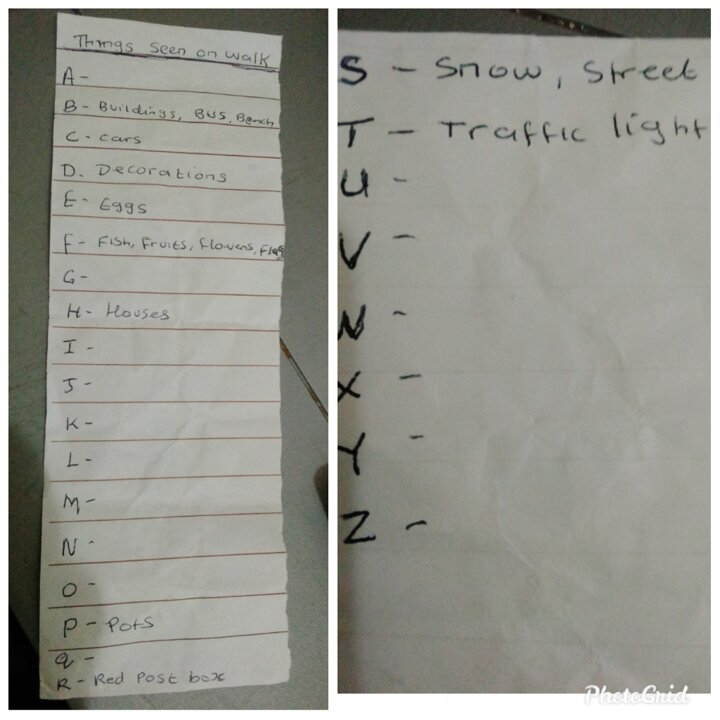 Things seen on walk
A -
B - Buildings, BUS, Bench
C - cars
D. Decorations
E - Eggs
F - Fish, Fruits, flowers, Flag
G -
H - Houses
I -
J -
K -
L -
M -
N -
O -
P - Pots
q -
R - Red Post box
S - Snow, Street
T - Traffic light
U -
V -
W -
X -
Y -
Z -
PhotoGrid